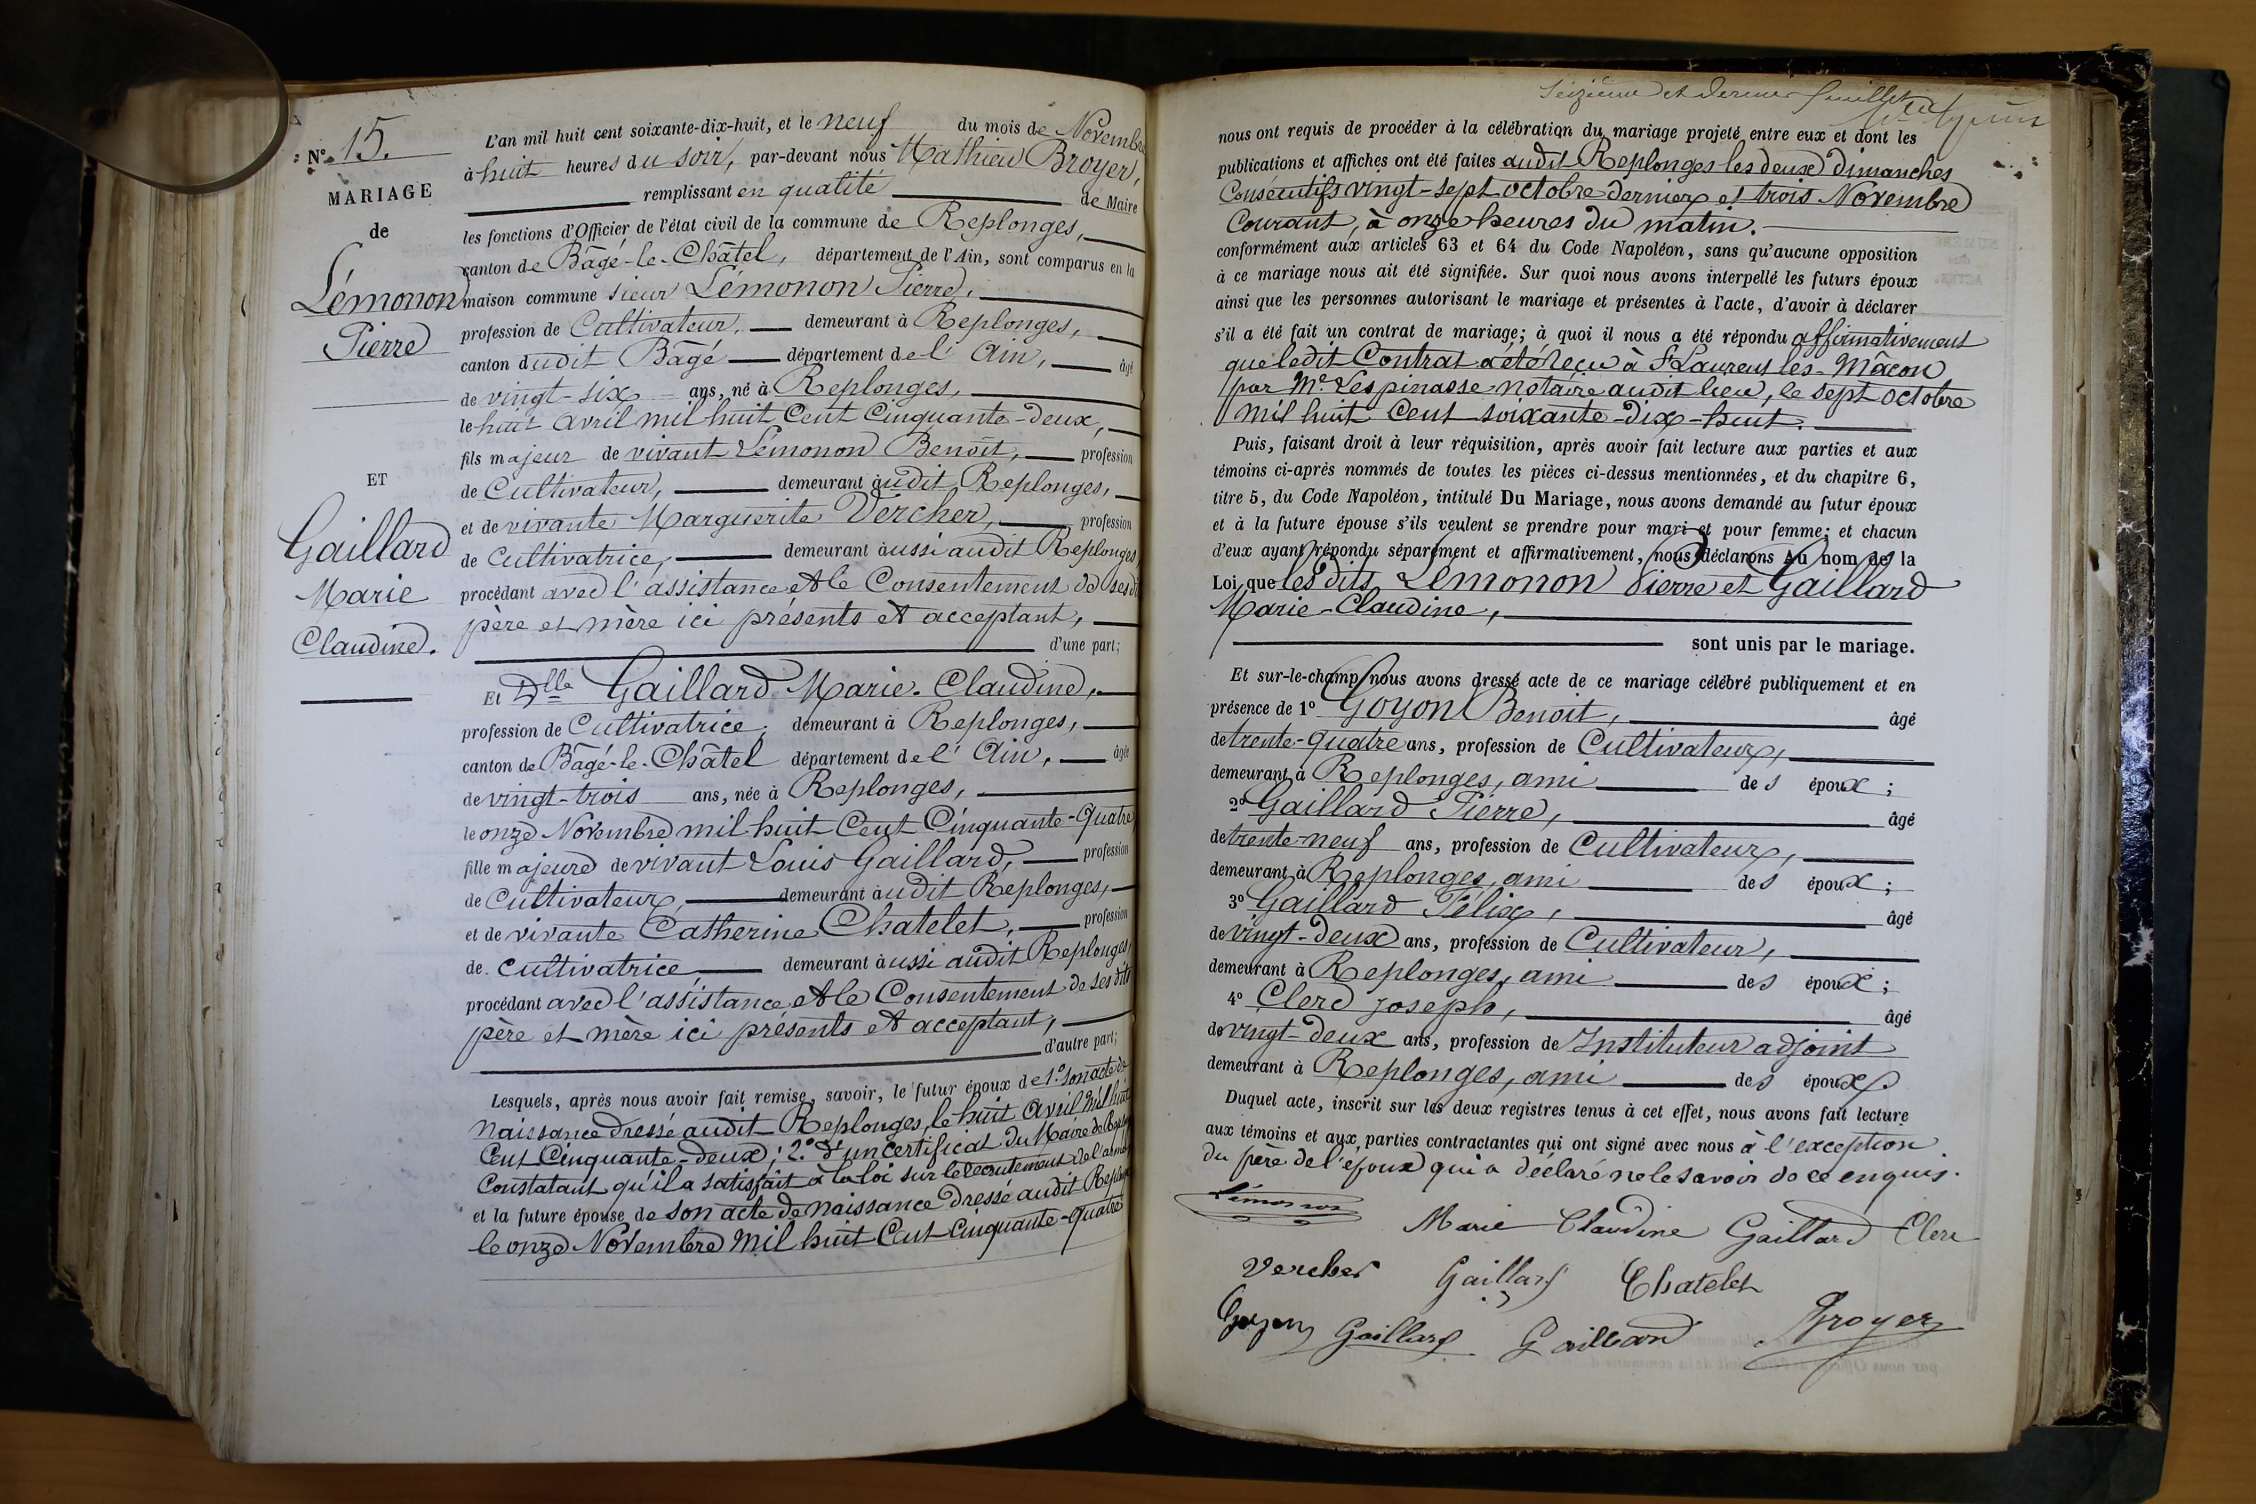 N° 15.
MARIAGE
de
Lémonon
Pierre
ET
Gaillard
Marie
Claudine.
L'an mil huit cent soixante-dix-huit, et le neuf du mois de Novembre
à huit heures du soir, par-devant nous Mathieu Broyer,
remplissant en qualité de Maire
les fonctions d'Officier de l'état civil de la commune de Replonges,
canton de Bâgé-le-Châtel, département de l'Ain, sont comparus en la
maison commune sieur Lémonon Pierre,
profession de Cultivateur, demeurant à Replonges,
canton dudit Bâgé département de l'Ain, âgé
de vingt-six ans, né à Replonges,
le huit Avril mil huit Cent Cinquante-deux,
fils majeur de vivant Lémonon Benoît, profession
de Cultivateur, demeurant audit Replonges,
et de vivante Marguerite Vercher, profession
de Cultivatrice, demeurant aussi audit Replonges,
procédant avec l'assistance et le Consentement de ses dits
père et mère ici présents et acceptant,
d'une part;
Et Dlle Gaillard Marie-Claudine,
profession de Cultivatrice, demeurant à Replonges,
canton de Bâgé-le-Châtel département de l'Ain, âgée
de vingt-trois ans, née à Replonges,
le onze Novembre mil huit Cent Cinquante-Quatre
fille majeure de vivant Louis Gaillard, profession
de Cultivateur, demeurant audit Replonges,
et de vivante Catherine Chatelet, profession
de Cultivatrice, demeurant aussi audit Replonges,
procédant avec l'assistance et le Consentement de ses dits
père et mère ici présents et acceptant,
d'autre part;
Lesquels, après nous avoir fait remise, savoir, le futur époux de 1° son acte de
Naissance dressé audit Replonges, le huit Avril Mil huit
Cent Cinquante-deux; 2° d'un certificat du Maire de
Constatant qu'il a satisfait à la loi sur le recrutement de l'armée
et la future épouse de son acte de Naissance dressé audit Replonges
le onze Novembre Mil huit Cent Cinquante-Quatre
Seizième et dernier feuillet
nous ont requis de procéder à la célébration du mariage projeté entre eux et dont les
publications et affiches ont été faites audit Replonges les deux dimanches
Consécutifs vingt-sept octobre dernier et trois Novembre
Courant, à onze heures du matin.
conformément aux articles 63 et 64 du Code Napoléon, sans qu'aucune opposition
à ce mariage nous ait été signifiée. Sur quoi nous avons interpellé les futurs époux
ainsi que les personnes autorisant le mariage et présentes à l'acte, d'avoir à déclarer
s'il a été fait un contrat de mariage; à quoi il nous a été répondu affirmativement
que ledit Contrat a été reçu à St Laurent les-Mâcon
par Me Lespinasse notaire audit lieu, le sept octobre
mil huit Cent soixante-dix-huit.
Puis, faisant droit à leur réquisition, après avoir fait lecture aux parties et aux
témoins ci-après nommés de toutes les pièces ci-dessus mentionnées, et du chapitre 6,
titre 5, du Code Napoléon, intitulé Du Mariage, nous avons demandé au futur époux
et à la future épouse s'ils veulent se prendre pour mari et pour femme; et chacun
d'eux ayant répondu séparément et affirmativement, nous déclarons Au nom de la
Loi que les dits Lémonon Pierre et Gaillard
Marie-Claudine,
sont unis par le mariage.
Et sur-le-champ nous avons dressé acte de ce mariage célébré publiquement et en
présence de 1° Goyon Benoît, âgé
de trente-quatre ans, profession de Cultivateur,
demeurant à Replonges, ami des époux;
2° Gaillard Pierre, âgé
de trente-neuf ans, profession de Cultivateur,
demeurant à Replonges, ami des époux;
3° Gaillard Félix, âgé
de vingt-deux ans, profession de Cultivateur,
demeurant à Replonges, ami des époux;
4° Clerc Joseph, âgé
de vingt-deux ans, profession de Instituteur adjoint
demeurant à Replonges, ami des époux.
Duquel acte, inscrit sur les deux registres tenus à cet effet, nous avons fait lecture
aux témoins et aux parties contractantes qui ont signé avec nous à l'exception
du père de l'époux qui a déclaré ne le savoir de ce enquis.
Lémonon
Marie Claudine Gaillard Clerc
Vercher Gaillard Chatelet
Goyon Gaillard Gaillard Broyer